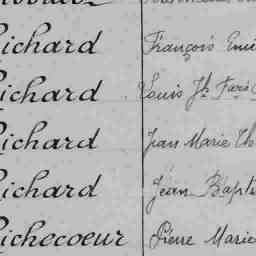 Richard François Emi
Richard Louis Jh
Richard Jean Marie Th
Richard Jean Bapts
Richecoeur Pierre Marie